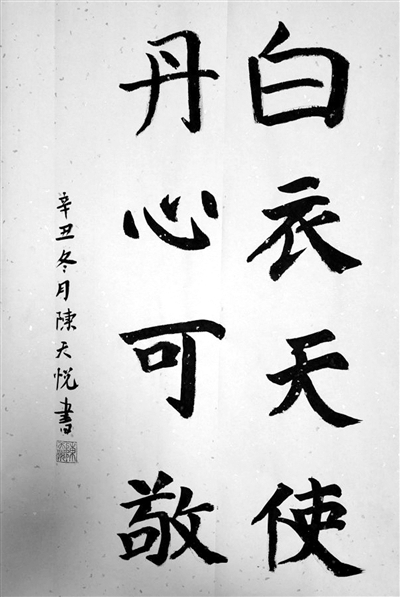 白衣天使
丹心可敬
辛丑冬月陳天悦書